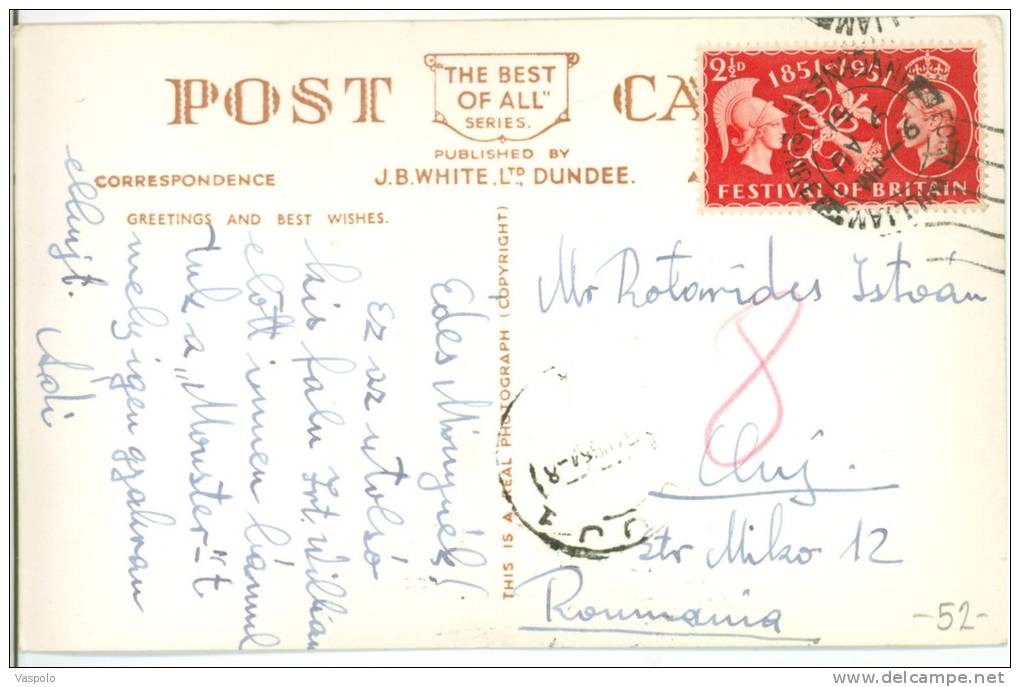 POST CA
"THE BEST
OF ALL"
SERIES.
PUBLISHED BY
J.B. WHITE, LTD, DUNDEE.
CORRESPONDENCE
A
GREETINGS AND BEST WISHES.
THIS IS A REAL PHOTOGRAPH (COPYRIGHT)
2½D
1851-1951
FESTIVAL OF BRITAIN
Édes
Ez az utolsó
kis falu Frt. William
előtt innen
túl a „Monster"-t
mely igen gyakran
eltűnt.
Adi
Mr Rotarides István
8
Cluj
Str Miko 12
Roumania
-52-
Vaspolo